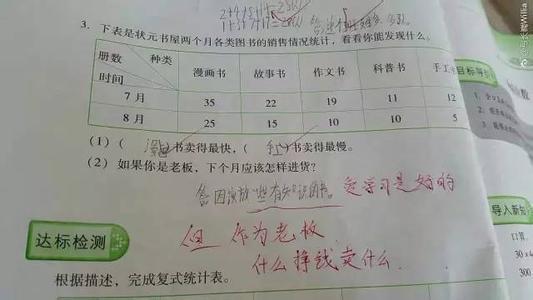 3. 下表是状元书屋两个月各类图书的销售情况统计，看看你能发现什么。
册数 种类 漫画书 故事书 作文书 科普书 手工
时间
7月 35 22 19 11 12
8月 25 15 10 10 5
(1)（漫画）书卖得最快，（手工）书卖得最慢。
(2) 如果你是老板，下个月应该怎样进货？
答：因该放一些有知识的书。
爱学习是好的
但作为老板
什么挣钱卖什么.
达标检测
根据描述，完成复式统计表。
目标导
导入新知
口算.
30×
300